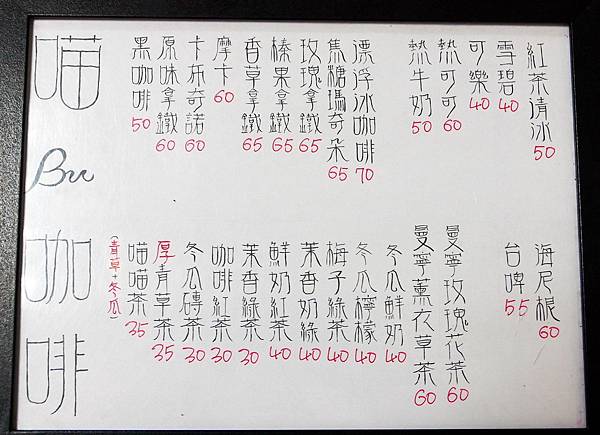 喵
Bu
咖
啡
黑咖啡 50
原味拿鐵 60
卡布奇諾 60
摩卡 60
香草拿鐵 65
榛果拿鐵 65
玫瑰拿鐵 65
焦糖瑪奇朵 65
漂浮冰咖啡 70
熱牛奶 50
熱可可 60
可樂 40
雪碧 40
紅茶清冰 50
(青草+冬瓜)
喵喵茶 35
厚青草茶 35
冬瓜磚茶 30
咖啡紅茶 30
茉香綠茶 30
鮮奶紅茶 40
茉香奶綠 40
梅子綠茶 40
冬瓜檸檬 40
冬瓜鮮奶 40
曼寧薰衣草茶 60
曼寧玫瑰花茶 60
台啤 55
海尼根 60